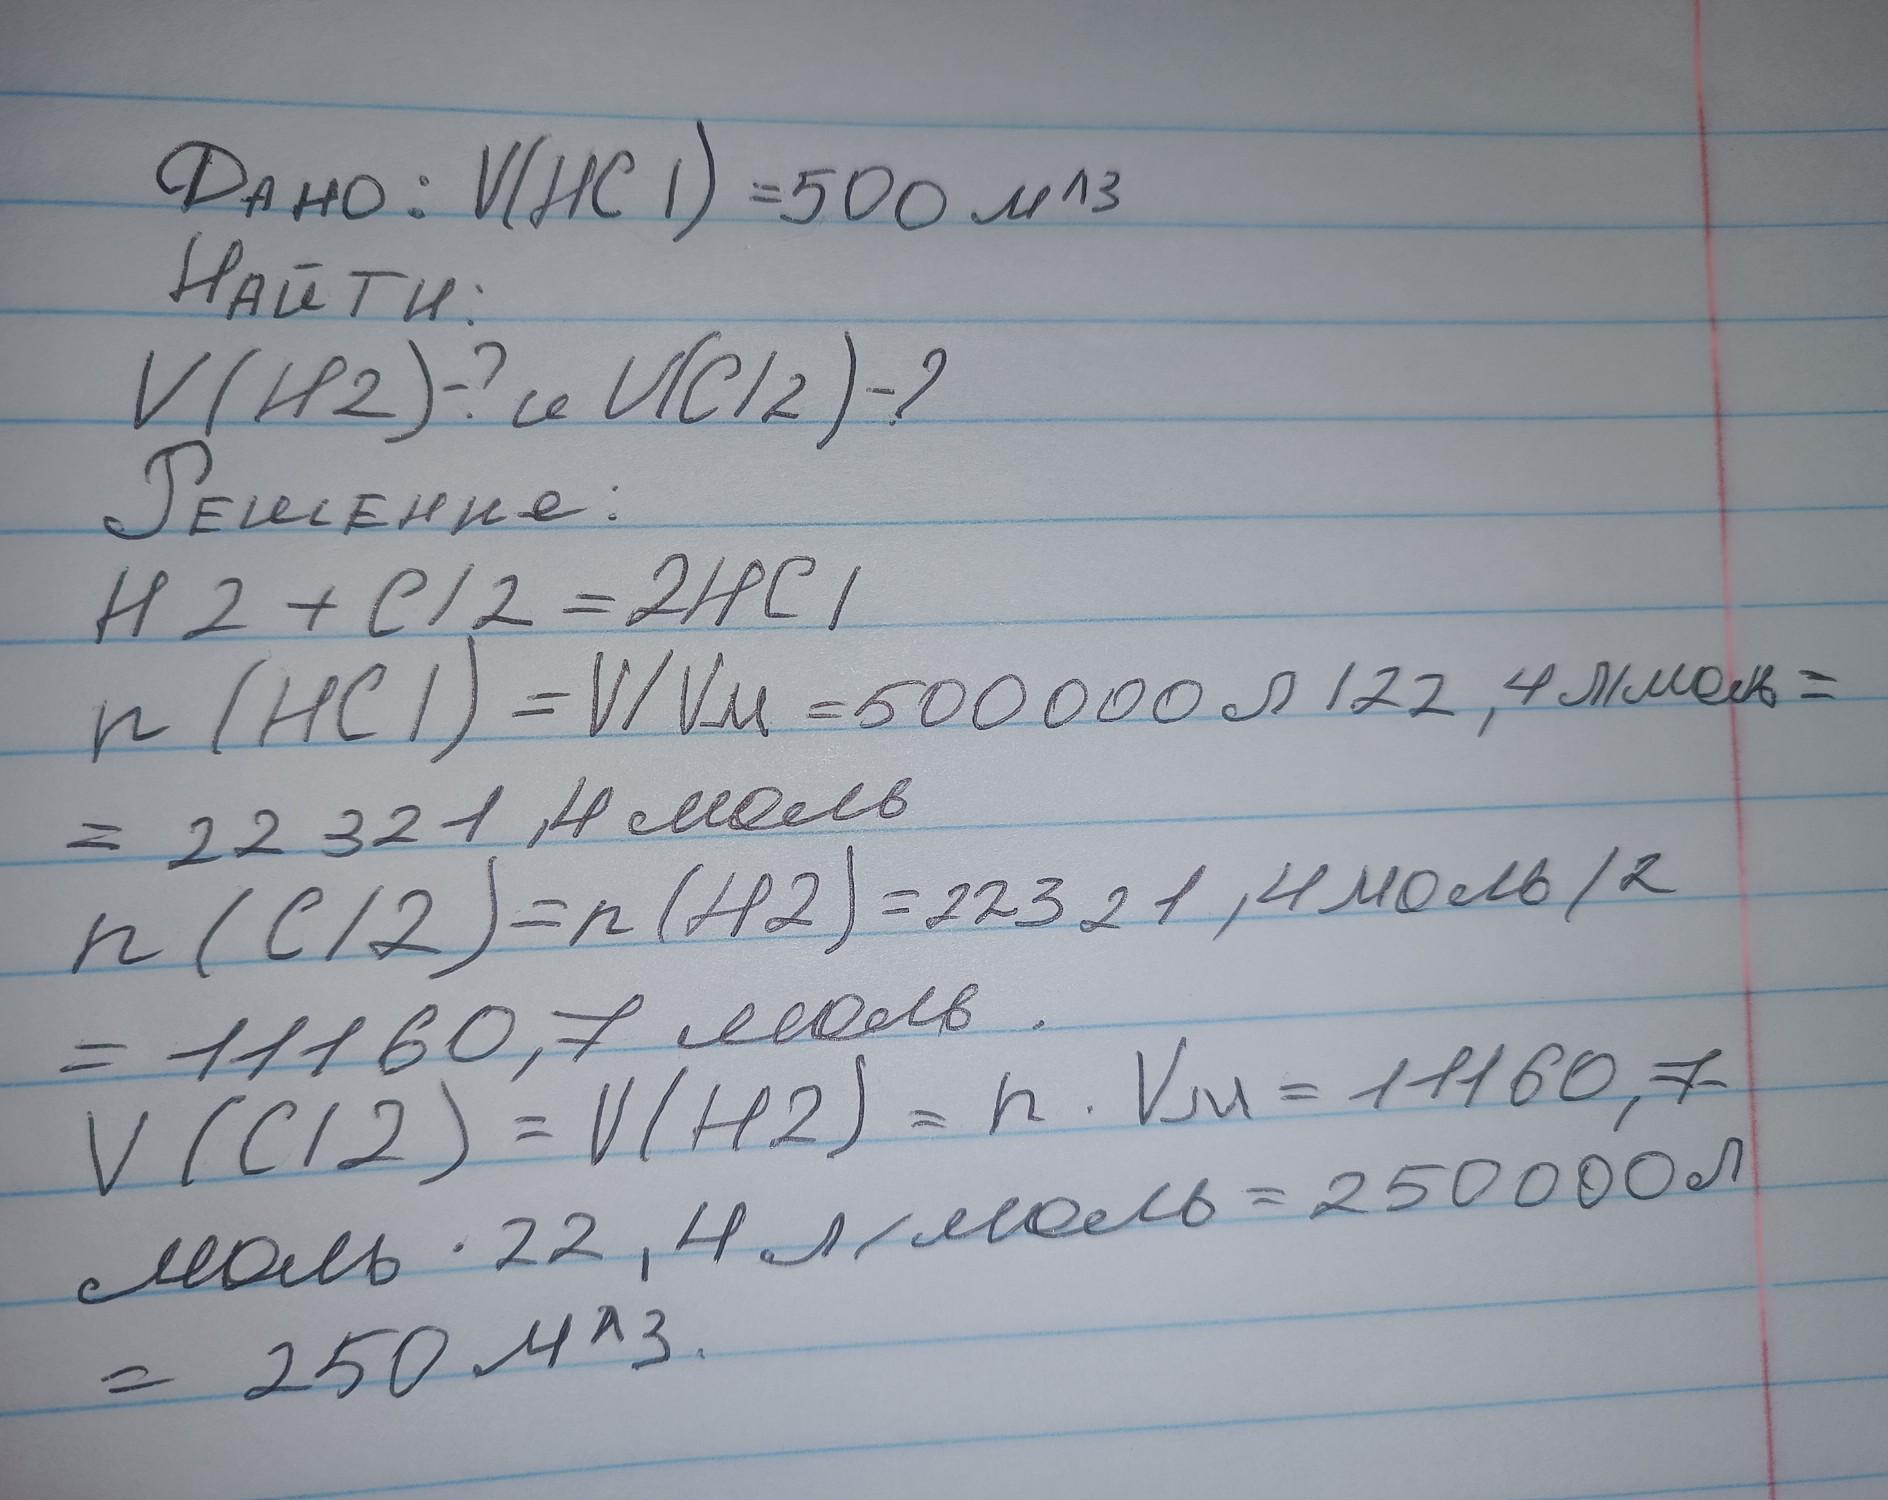 Дано: V(HCl) = 500 м^3
Найти:
V(H2)-? и V(Cl2)-?
Решение:
H2 + Cl2 = 2HCl
n(HCl) = V/Vм = 500000 л / 22,4 л/моль =
= 22321,4 моль
n(Cl2) = n(H2) = 22321,4 моль / 2
= 11160,7 моль.
V(Cl2) = V(H2) = n · Vм = 11160,7
моль · 22,4 л/моль = 250000 л
= 250 м^3.